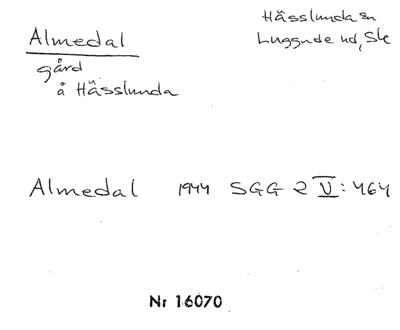 Almedal
gård
å Hässlunda
Hässlunda sn
Luggude hd, Sk
Almedal 1944 SGG 2 V: 464
Nr 16070